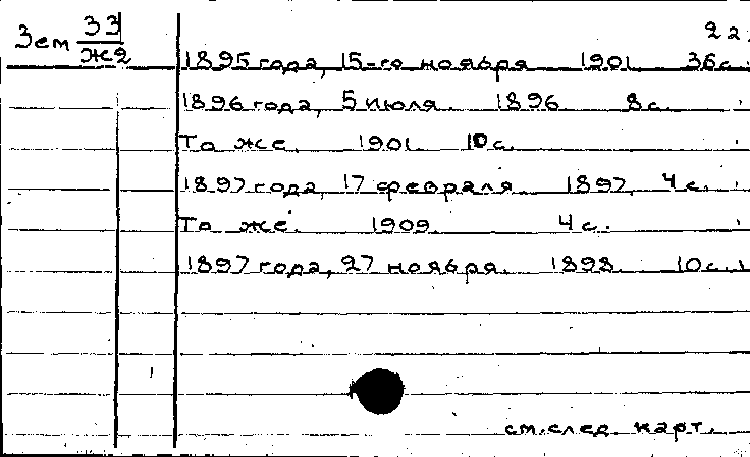 22.
Зем 33
Же2
1895 года, 15-го ноября 1901. 36с.
1896 года, 5 июля. 1896. 8с.
То же. 1901. 10с.
1897 года, 17 февраля. 1897. 4с.
То же. 1909. 4с.
1897 года, 27 ноября. 1898. 10с.
см.след. карт.